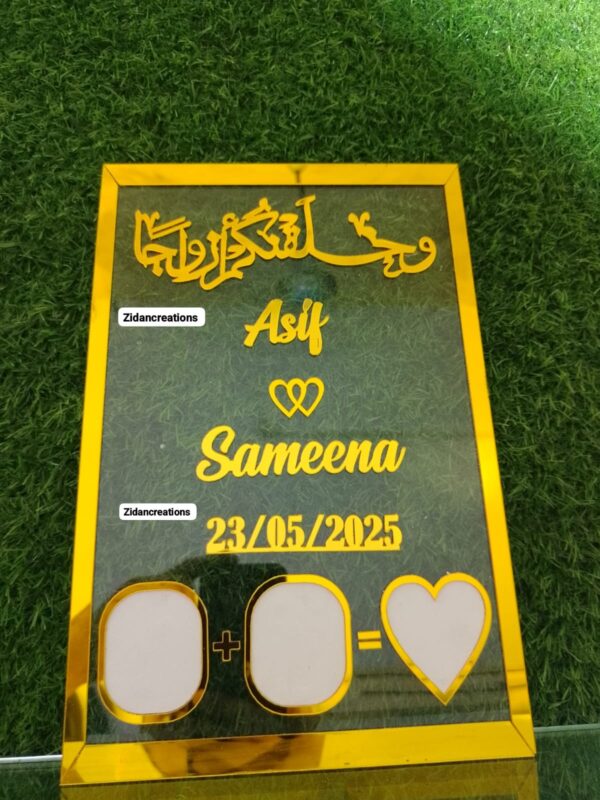 وخلقنكم أزواجا
Asif
Zidancreations
Sameena
Zidancreations
23/05/2025
+ =